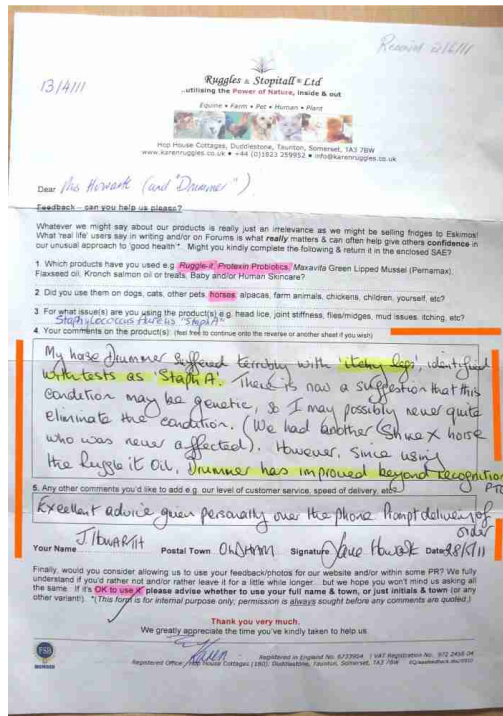 Received 2/6/11
13/4/11
Ruggles & Stopitall® Ltd
..utilising the Power of Nature, inside & out
Equine • Farm • Pet • Human • Plant
Hop House Cottages, Duddlestone, Taunton, Somerset, TA3 7BW
www.karenruggles.co.uk • +44 (0)1823 259952 • info@karenruggles.co.uk
Dear Mrs Howarth (and "Drummer").
Feedback – can you help us please?
Whatever we might say about our products is really just an irrelevance as we might be selling fridges to Eskimos!
What 'real life' users say in writing and/or on Forums is what really matters & can often help give others confidence in
our unusual approach to 'good health'*. Might you kindly complete the following & return it in the enclosed SAE?
1. Which products have you used e.g. Ruggle-it, Protexin Probiotics, Maxavita Green Lipped Mussel (Pernamax),
Flaxseed oil, Kronch salmon oil or treats, Baby and/or Human Skincare?
2. Did you use them on dogs, cats, other pets, horses, alpacas, farm animals, chickens, children, yourself, etc?
3. For what issue(s) are you using the product(s) e.g. head lice, joint stiffness, flies/midges, mud issues, itching, etc?
Staphylococcus Aureus "Staph A"
4. Your comments on the product(s): (feel free to continue onto the reverse or another sheet if you wish)
My horse Drummer suffered terribly with 'itchy legs', identified
with tests as 'Staph A'. There is now a suggestion that this
condition may be genetic, so I may possibly never quite
eliminate the condition. (We had another Shire X horse
who was never affected). However, since using
the Ruggle it Oil, Drummer has improved beyond recognition
PTO
5. Any other comments you'd like to add e.g. our level of customer service, speed of delivery, etc?
Excellent advice given personally over the phone Prompt delivery of
order
Your Name J. HOWARTH Postal Town OLDHAM Signature Jane Howarth Date 28/5/11
Finally, would you consider allowing us to use your feedback/photos for our website and/or within some PR? We fully
understand if you'd rather not and/or rather leave it for a little while longer... but we hope you won't mind us asking all
the same. If it's OK to use it please advise whether to use your full name & town, or just initials & town (or any
other variant!). *(This form is for internal purpose only; permission is always sought before any comments are quoted.)
Thank you very much.
We greatly appreciate the time you've kindly taken to help us.
Karen
FSB
MEMBER
Registered in England No. 6733904 | VAT Registration No. 972 2456 04
Registered Office: Hop House Cottages (180), Duddlestone, Taunton, Somerset, TA3 7BW